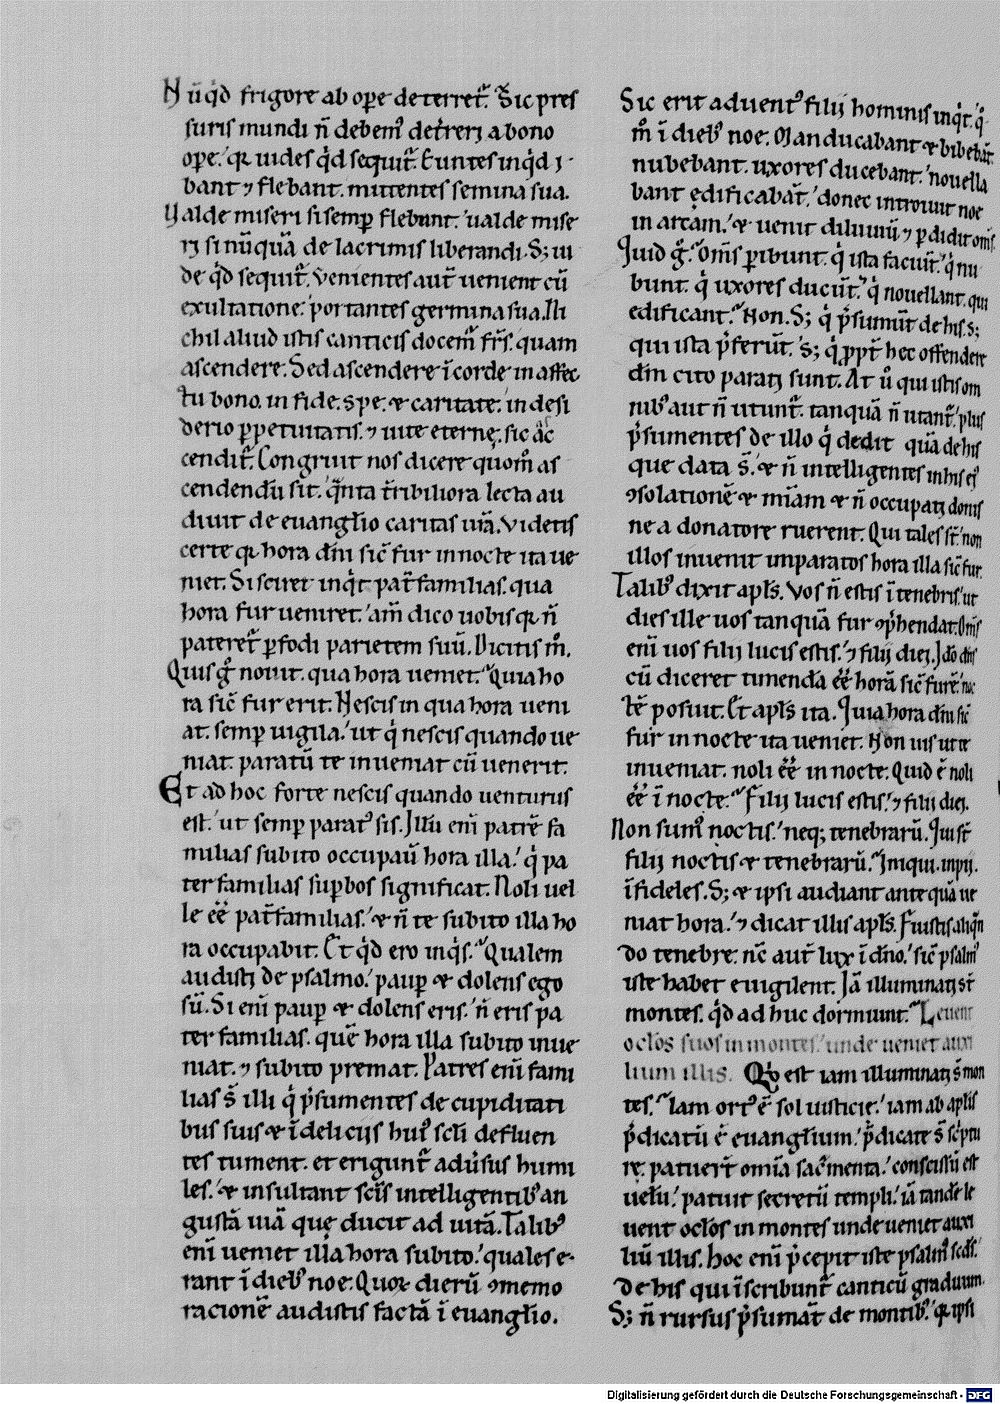 Nūqd frigore ab ope deterret᷑. Sic pres
suris mundi n̄ debem᷒ det̄reri a bono
ope. qꝛ uides qd sequit᷑. Euntes inqd i
bant ⁊ flebant. mittentes semina sua.
Ualde miseri si semꝑ flebunt. ualde mise
ri si nūquā de lacrimis liberandi. S; ui
de qd sequit᷑. Venientes aut̄ uenient cū
exultatione. portantes germina sua. Ni
chil aliud istis canticis docem᷑ frs̄. quam
ascendere. Sed ascendere ī corde in affec
tu bono. in fide. spe. & caritate. in desi
derio ꝑpetuitatis. ⁊ uite eternę. sic as
cendit᷑. Congruit nos dicere quom̄ as
cendendū sit. q̄nta t̄ribiliora lecta au
diuit de euangl̄io caritas ur̄a. Videtis
certe qꝛ hora dn̄i sic̄ fur in nocte ita ue
niet. Si sciret inq̇t pat̄familias. qua
hora fur ueniret. am̄ dico uobis qꝛ n̄
pateret᷑ ꝑfodi parietem suū. Dicitis m̄.
Quis gͦ nouit. qua hora ueniet. Quia ho
ra sic̄ fur erit. Nescis in qua hora ueni
at. semꝑ uigila. ut q̇ nescis quando ue
niat. paratū te inueniat cū uenerit.
Et ad hoc forte nescis quando uenturus
est. ut semꝑ parat᷒ sis. Illū eni patrē fa
milias subito occupauit hora illa. q̇ pa
ter familias suꝑbos significat. Noli uel
le ēē pat̄familias. & n̄ te subito illa ho
ra occupabit. Et qd ero inq̇s. Qualem
audisti de psalmo. paup & dolens ego
sū. Si eni paup & dolens eris. n̄ eris pa
ter familias. quē hora illa subito inue
niat. ⁊ subito premat. Patres eni fami
lias s̄ illi q̇ p̄sumentes de cupiditati
bus suis & ī deliciis hui᷒ scl̄i defluen
tes tument. et erigunt᷑ adūsus humi
les. & insultant scīs intelligentib᷒ an
gustā uiā quę ducit ad uitā. Talib᷒
eni ueniet illa hora subito. quales e
rant ī dieb᷒ noe. Quoꝝ dierū ꝯmemo
racionē audistis factā ī euangl̄io.
Sic erit aduent᷒ filii hominis inq̇t. q̇
m̄ ī dieb᷒ noe. Manducabant & bibebāt.
nubebant. uxores ducebant. nouella
bant ędificabāt. donec introiuit noe
in arcam. & uenit diluuiū ⁊ ꝑdidit om̄s.
Quid gͦ. om̄s ꝑibunt. q̇ ista faciūt. q̇ nu
bunt. q̇ uxores ducūt. q̇ nouellant. qui
edificant. Non. S; q̇ p̄sumūt de his. s;
qui ista p̄ferūt. s; q̇ ꝓpt̄ hec offendere
dm̄ cito parati sunt. At ū qui istis om
nib᷒ aut n̄ utunt᷑. tanquā n̄ utant᷑. plus
p̄sumentes de illo q̇ dedit quā de his
que data s̄. & n̄ intelligentes in his ei᷒
ꝯsolationē & mīam & n̄ occupati donis
ne a donatore ruerent. Qui tales st̄. non
illos inuenit imparatos hora illa sic̄ fur.
Talib᷒ dixit apls̄. Vos n̄ estis ī tenebris. ut
dies ille uos tanquā fur ꝯp̄hendat. Om̄s
eni uos filii lucis estis. ⁊ filii diei. Ido dn̄s
cū diceret timendā ēē horā sic̄ furē. noc
tē posuit. Et apls̄ ita. Quia hora dn̄i sic̄
fur in nocte ita ueniet. Non uis ut te
inueniat. noli ēē in nocte. Quid ē noli
ēē ī nocte. Filii lucis estis. ⁊ filii diei.
Non sum᷒ noctis. neq; tenebrarū. Qui st̄
filii noctis & tenebrarū. Iniqui. impii.
īfideles. S; & ipsi audiant ante quā ue
niat hora. ⁊ dicat illis apls̄. Fuistis aliqn̄
do tenebre. nc̄ aut̄ lux ī dn̄o. sic̄ psalm᷒
iste habet euigilent. Iā illuminati st̄
montes. qd ad huc dormiunt. Leuent
oclōs suos in montes. unde ueniet auxi
lium illis. Qͦ est iam illuminati s̄ mon
tes. Iam ort᷒ ē sol iusticie. iam ab aplis
p̄dicatū ē euangl̄ium. p̄dicate s̄ sc̄ptu
rę. patuer̄t om̄ia sac̄menta. conscissū est
uelū. patuit secretū templi. iā tandē le
uent oclōs in montes unde ueniet auxi
liū illis. Hoc eni p̄cepit iste psalm᷒ scd̄s.
De his qui īscribunt᷑ canticū graduum.
S; n̄ rursus p̄sumāt de montib᷒. qꝛ ipsi
Digitalisierung gefördert durch die Deutsche Forschungsgemeinschaft - DFG